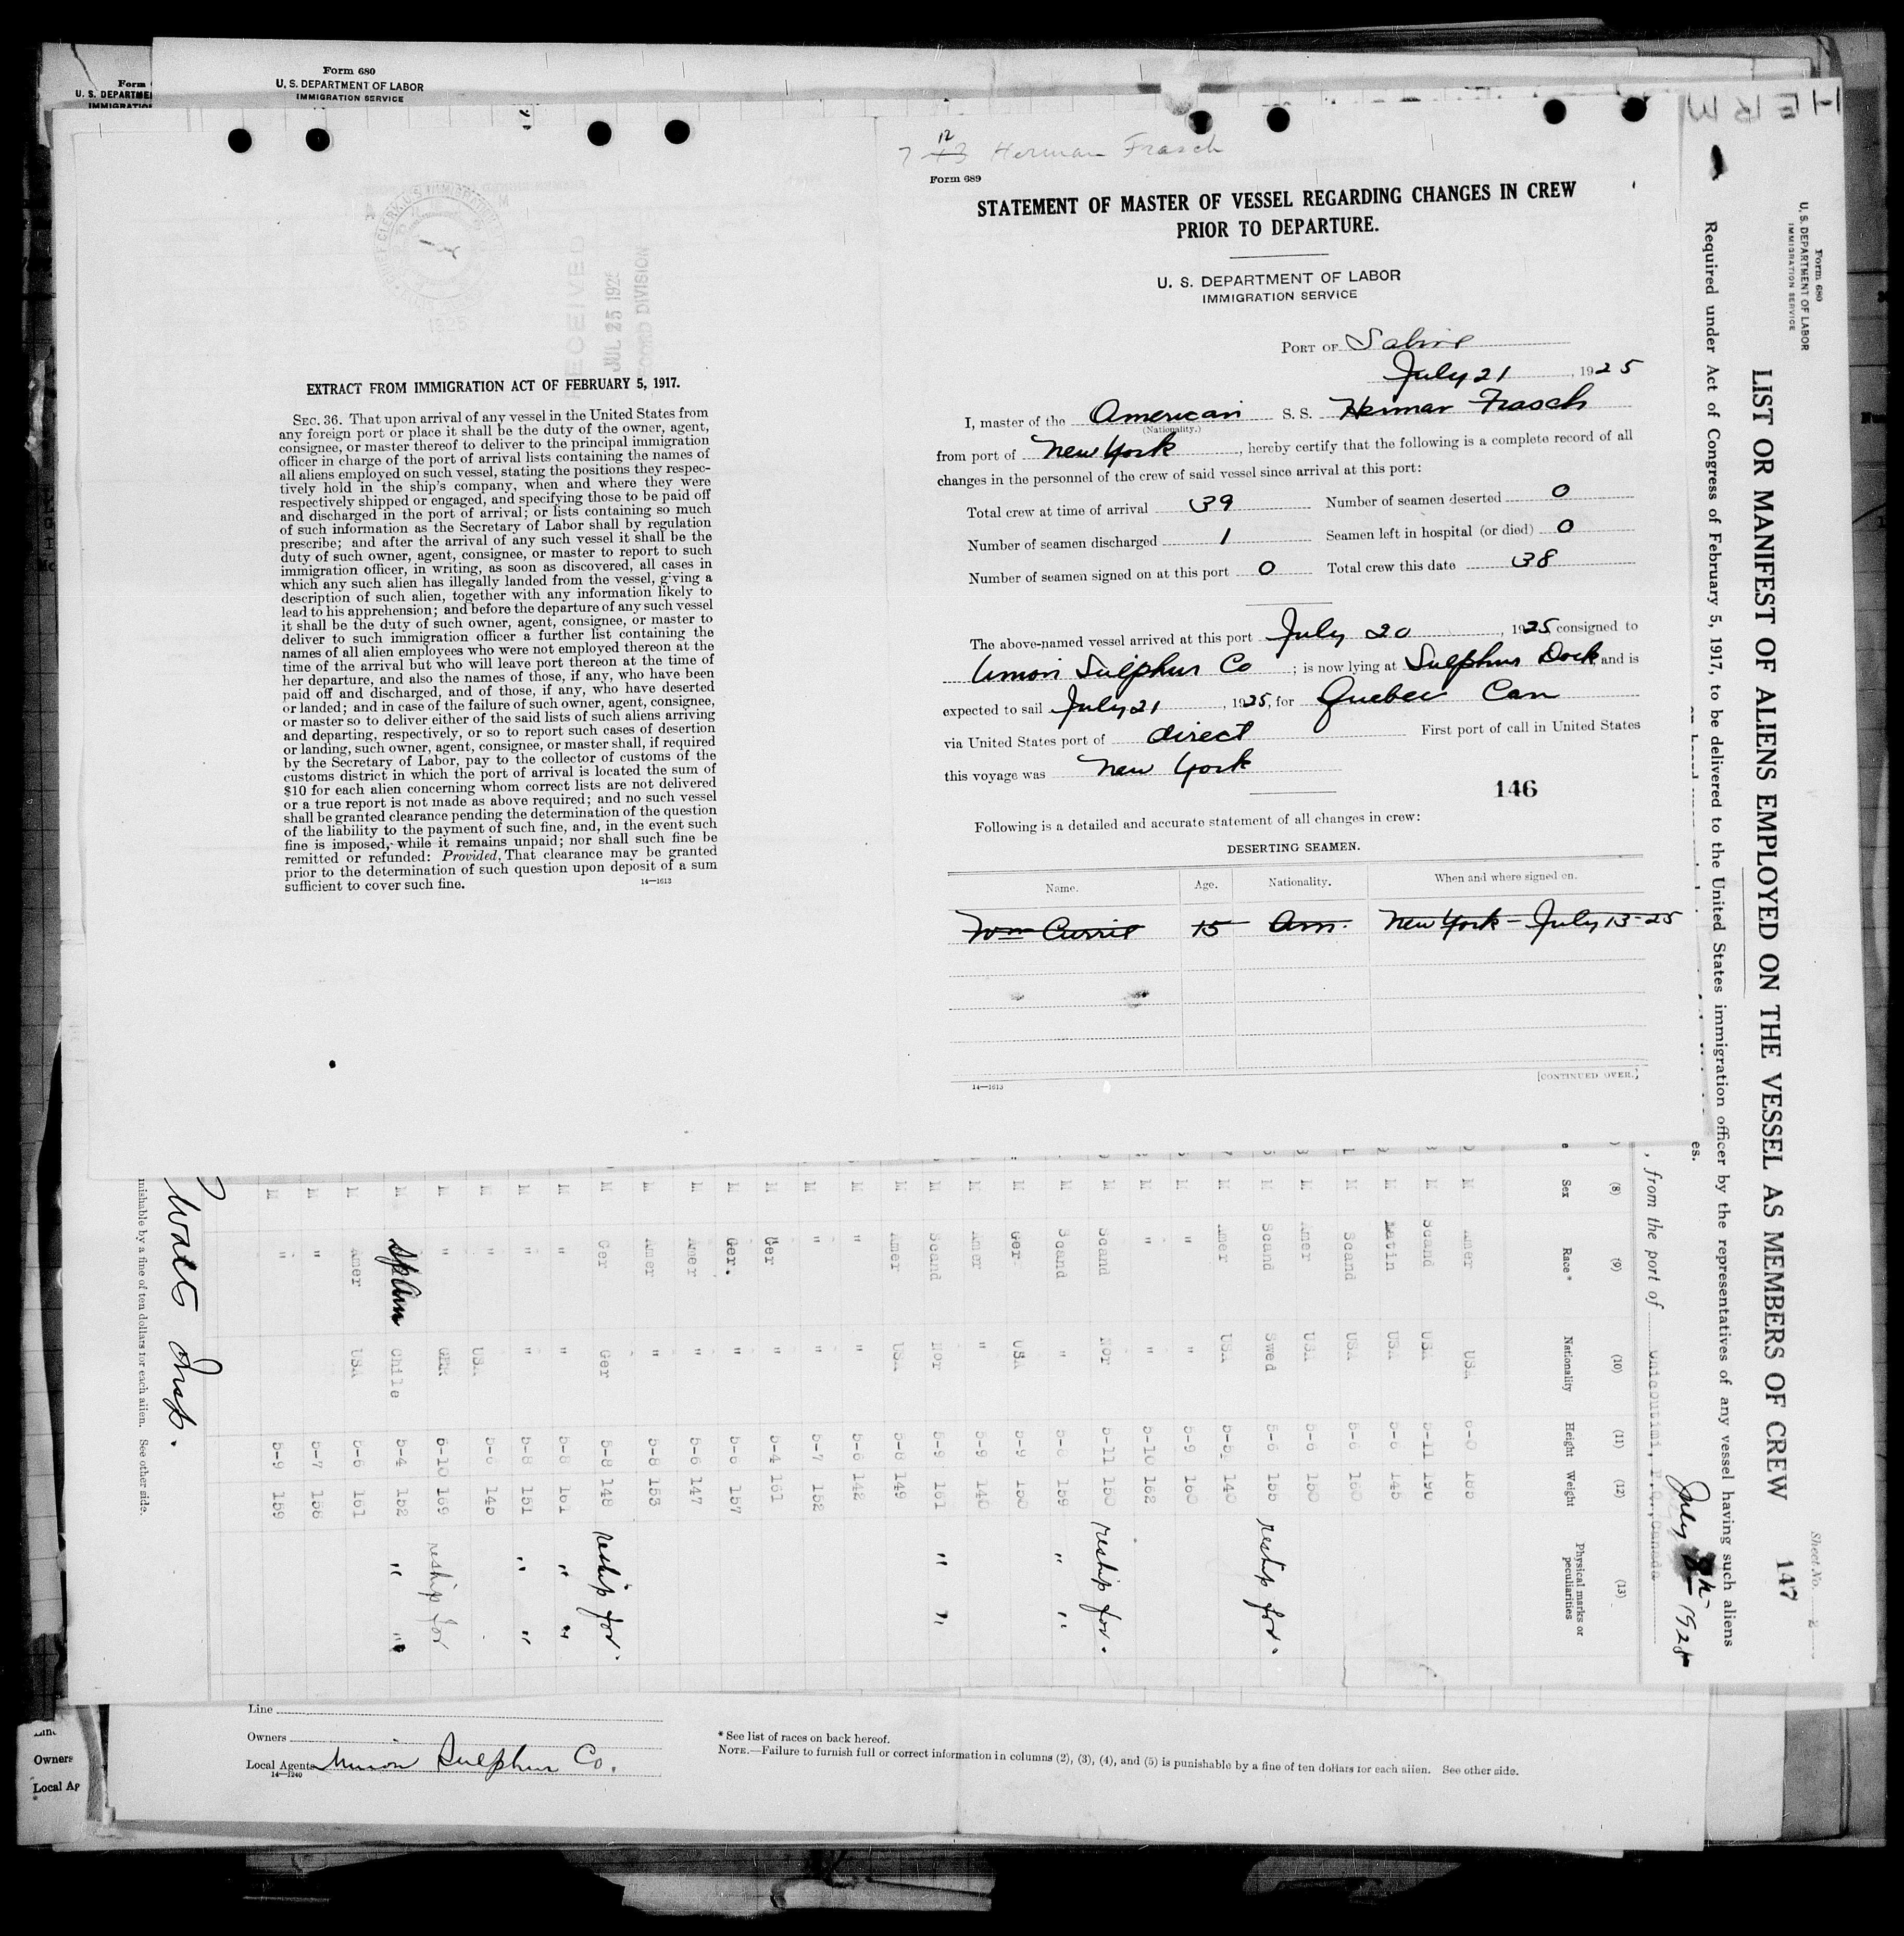 Form 680
U. S. DEPARTMENT OF LABOR
IMMIGRATION SERVICE
Form
U. S. DEPARTME
IMMIGRATIO
RECEIVED
JUL 25 192
RECORD DIVISION
1925
EXTRACT FROM IMMIGRATION ACT OF FEBRUARY 5, 1917.
SEC. 36. That upon arrival of any vessel in the United States from
any foreign port or place it shall be the duty of the owner, agent,
consignee, or master thereof to deliver to the principal immigration
officer in charge of the port of arrival lists containing the names of
all aliens employed on such vessel, stating the positions they respec-
tively hold in the ship's company, when and where they were
respectively shipped or engaged, and specifying those to be paid off
and discharged in the port of arrival; or lists containing so much
of such information as the Secretary of Labor shall by regulation
prescribe; and after the arrival of any such vessel it shall be the
duty of such owner, agent, consignee, or master to report to such
immigration officer, in writing, as soon as discovered, all cases in
which any such alien has illegally landed from the vessel, giving a
description of such alien, together with any information likely to
lead to his apprehension; and before the departure of any such vessel
it shall be the duty of such owner, agent, consignee, or master to
deliver to such immigration officer a further list containing the
names of all alien employees who were not employed thereon at the
time of the arrival but who will leave port thereon at the time of
her departure, and also the names of those, if any, who have been
paid off and discharged, and of those, if any, who have deserted
or landed; and in case of the failure of such owner, agent, consignee,
or master so to deliver either of the said lists of such aliens arriving
and departing, respectively, or so to report such cases of desertion
or landing, such owner, agent, consignee, or master shall, if required
by the Secretary of Labor, pay to the collector of customs of the
customs district in which the port of arrival is located the sum of
$10 for each alien concerning whom correct lists are not delivered
or a true report is not made as above required; and no such vessel
shall be granted clearance pending the determination of the question
of the liability to the payment of such fine, and, in the event such
fine is imposed, while it remains unpaid; nor shall such fine be
remitted or refunded: Provided, That clearance may be granted
prior to the determination of such question upon deposit of a sum
sufficient to cover such fine.
14—1613
12
7 Herman Frasch
Form 689
STATEMENT OF MASTER OF VESSEL REGARDING CHANGES IN CREW
PRIOR TO DEPARTURE.
U. S. DEPARTMENT OF LABOR
IMMIGRATION SERVICE
PORT OF Sabine
July 21, 1925
I, master of the American S. S. Herman Frasch
(Nationality.)
from port of New York, hereby certify that the following is a complete record of all
changes in the personnel of the crew of said vessel since arrival at this port:
Total crew at time of arrival 39 Number of seamen deserted 0
Number of seamen discharged 1 Seamen left in hospital (or died) 0
Number of seamen signed on at this port 0 Total crew this date 38
The above-named vessel arrived at this port July 20, 1925, consigned to
Union Sulphur Co; is now lying at Sulphur Dock and is
expected to sail July 21, 1925, for Quebec Can
via United States port of direct First port of call in United States
this voyage was New York
146
Following is a detailed and accurate statement of all changes in crew:
DESERTING SEAMEN.
Name. Age. Nationality. When and where signed on.
Wm Currie 15 Am. New York - July 13-25
14—1613
[CONTINUED OVER.]
HERM
Form 680
U. S. DEPARTMENT OF LABOR
IMMIGRATION SERVICE
Sheet No. 2
LIST OR MANIFEST OF ALIENS EMPLOYED ON THE VESSEL AS MEMBERS OF CREW 147
Required under Act of Congress of February 5, 1917, to be delivered to the United States immigration officer by the representatives of any vessel having such aliens
es.
July 1925
, from the port of Chicoutimi, P.Q., Canada
(8) (9) (10) (11) (12) (13)
Sex Race* Nationality Height Weight Physical marks or peculiarities
M Amer USA 6-0 185
M Scand USA 5-11 190
M Latin USA 5-6 145
M Scand USA 5-6 160
M Amer USA 5-6 150
M Scand Swed 5-6 155 reship for.
M Amer USA 5-5 140
M " " 5-9 160
M " " 5-10 162
M Scand Nor 5-11 150 reship for.
M Scand " 5-8 159 " "
M Ger USA 5-9 150
M Amer " 5-9 140
M Scand Nor 5-9 161 " "
M Amer USA 5-8 149
M " " 5-6 142
M " " 5-7 152
M Ger " 5-4 161
M Ger. " 5-6 157
M Amer " 5-6 147
M Amer " 5-8 153
M Ger Ger 5-8 148 reship for.
M " " 5-8 161 " "
M " " 5-8 151 " "
M " USA 5-6 145
M " GER 5-10 169 reship for
M SpAm Chile 5-4 152 " "
M Amer USA 5-6 161
M " 5-7 158
M " 5-9 159
Watts Insp.
nishable by a fine of ten dollars for each alien. See other side.
Line
Owners
Local Agents Union Sulphur Co.
14—1240
* See list of races on back hereof.
NOTE.—Failure to furnish full or correct information in columns (2), (3), (4), and (5) is punishable by a fine of ten dollars for each alien. See other side.
Line
Owners
Local Ag